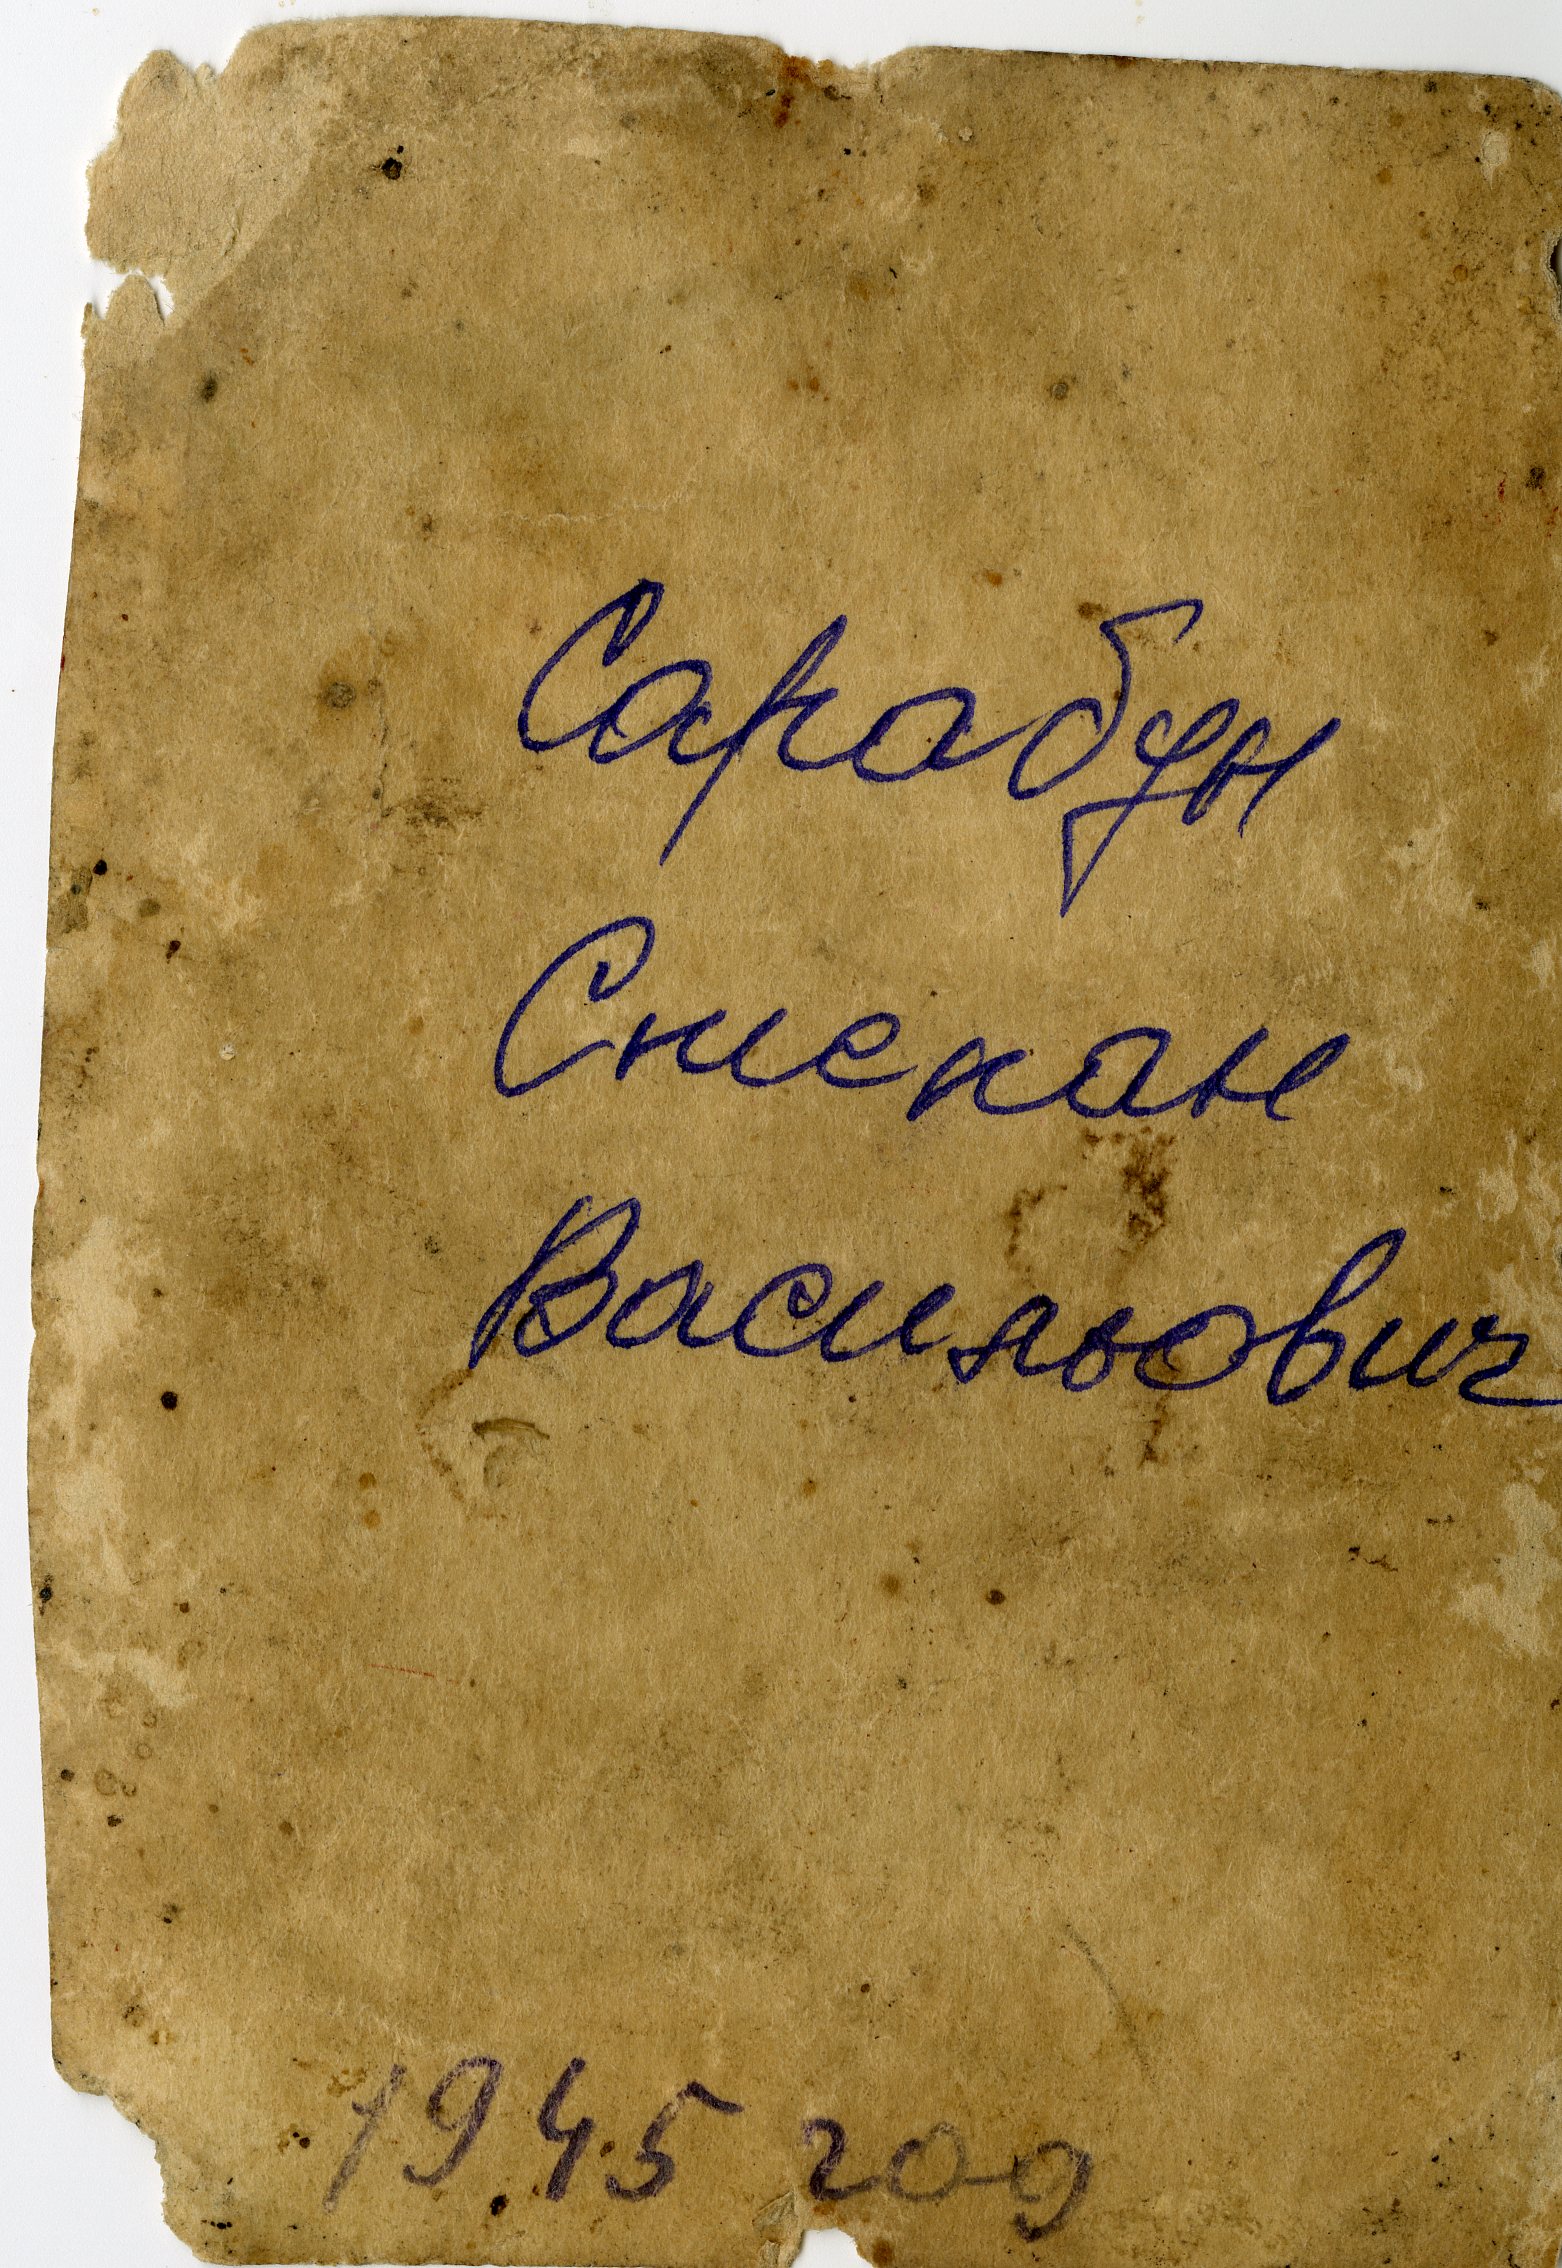 Сарабун
Степан
Васильович
1945 год